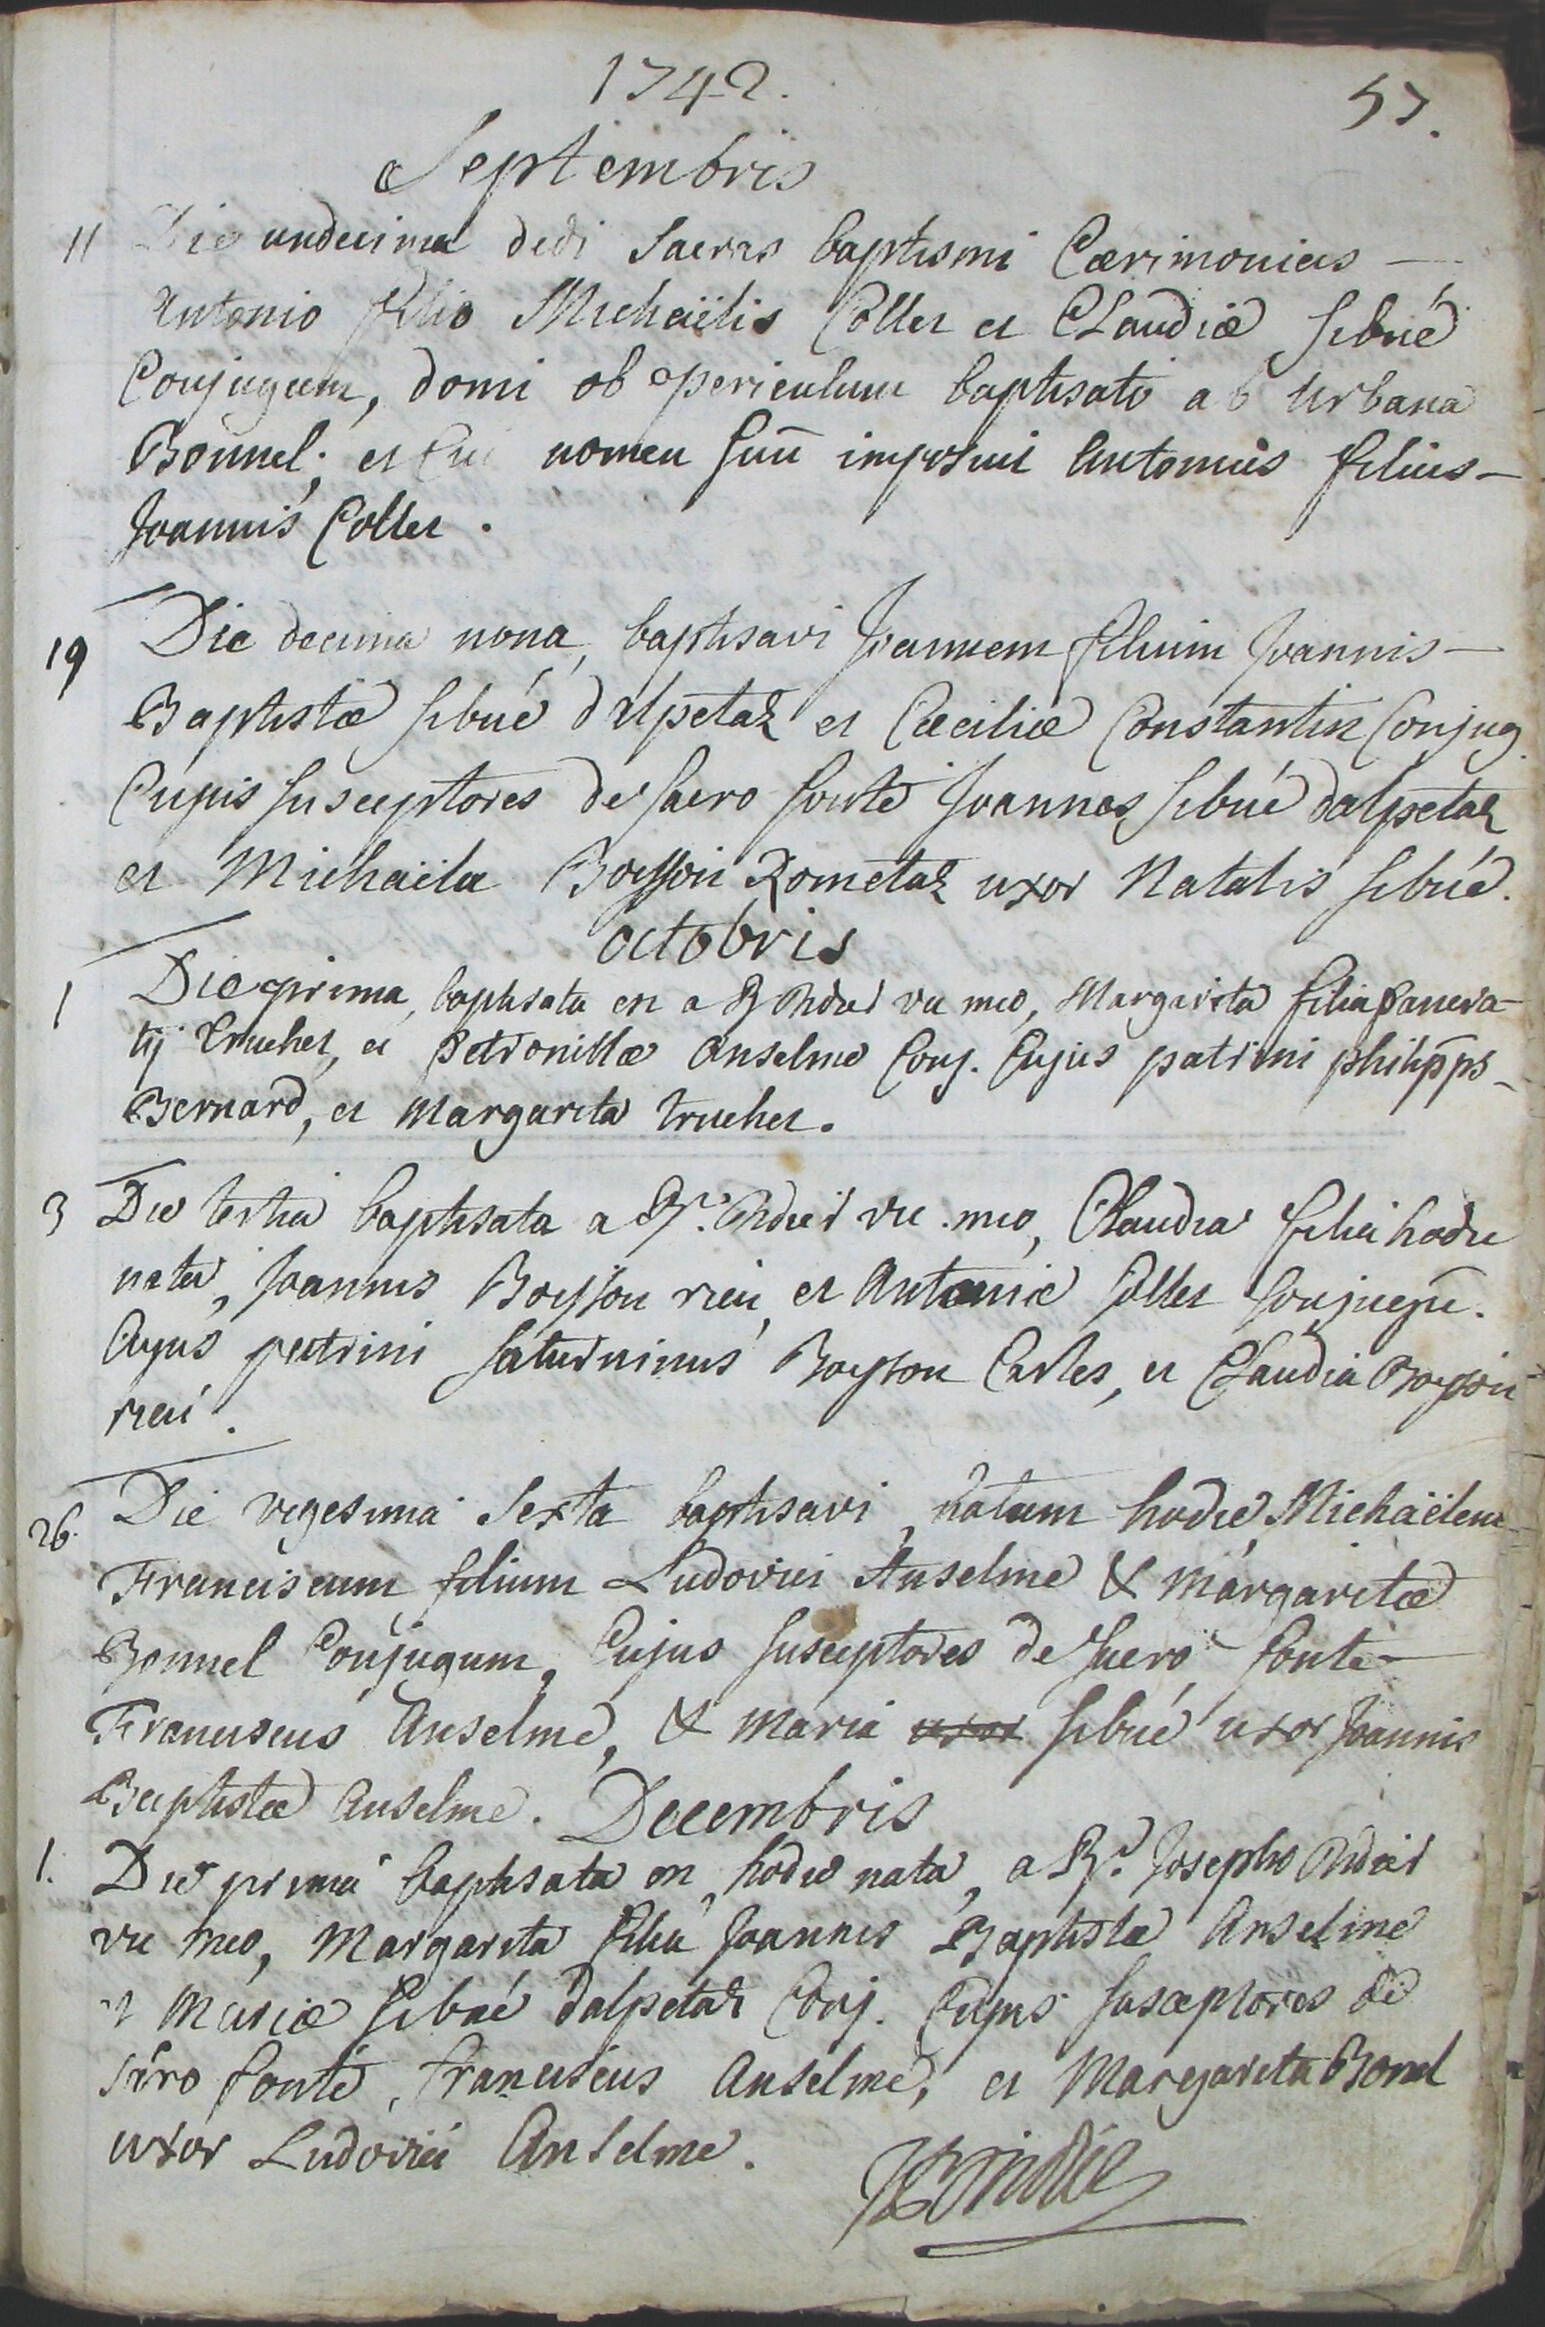 1742.
57.
Septembris
11 Die undecima dedi Sacras baptismi Cærimonias —
Antonio filio Michaëlis Collet et Claudiæ Sibué
Conjugum, domi ob periculum baptisato ab Urbana
Bonnel; et Cui nomen suū imposuit Antonius filius —
Joannis Collet.
19 Die decima nona, baptisavi Joannem filium Joannis —
Baptistæ Sibué dalpetaz et Cæciliæ Constantin Conjug.
Cujus susceptores de sacro fonte Joannes Sibué dalpetaz
et Michaëla Boisson Rometaz uxor Natalis Sibué.
octobris
1 Die prima, baptisata est a R vic meo, Margarita filia pancra-
tij truchet, et Petronillæ Anselme Conj. Cujus patrini philipps
Bernard, et Margarita truchet.
3 Die tertia baptisata a Rd. vic. meo, Claudia filia hodie
nata, Joannis Boisson rieu, et Antoniæ Collet Conjugū.
Cujus patrini Saturninus Boisson Carles, et Claudia Boisson
rieu.
26. Die vigesima Sexta baptisavi, natum hodie Michaëlem
Franciscum filium Ludovici Anselme & Margaritæ
Bonnel Conjugum, Cujus susceptores de Sacro fonte —
Franciscus Anselme, & Maria uxor Sibué uxor Joannis
Baptistæ Anselme. Decembris
1. Die prima baptisata est, hodie nata, a Rd. Josepho
vic meo, Margarita filia Joannis Baptistæ Anselme
et Mariæ Sibué dalpetaz Conj. Cujus susceptores de
sacro fonte, franciscus Anselme, et Margarita Bonel
uxor Ludovici Anselme.